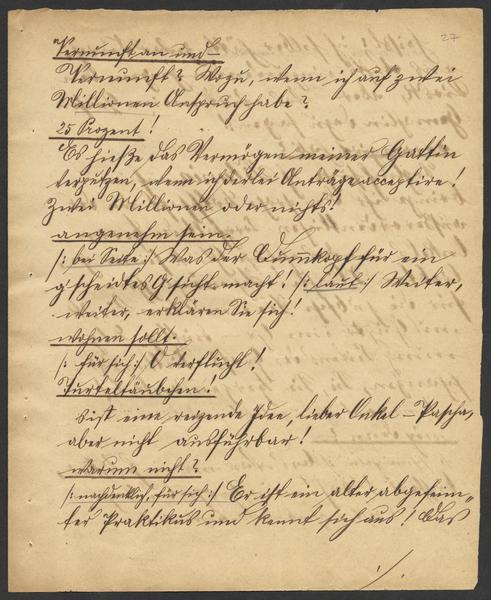 27
Vernunft an und –
Vernunft? Wozu, wenn ich auf zwei
Millionen Anspruch habe?
25 Prozent!
Es hieße das Vermögen meiner Gattin
verputzen, wenn ich derlei Anträge acceptire!
Zwei Millionen oder nichts!
angenehm sein.
/: bei Seite :/ Was der Dummkopf für ein
g'scheidtes G'sicht macht! /: laut :/ Weiter,
weiter, erklären Sie sich!
wohnen sollt.
/: für sich :/ O verflucht!
Turteltäubchen!
's ist eine reizende Idee, lieber Onkel-Pascha,
aber nicht ausführbar!
warum nicht?
/: nachdenklich, für sich :/ Er ist ein alter abgefeim-
ter Praktikus und kennt sich aus! Das
./.